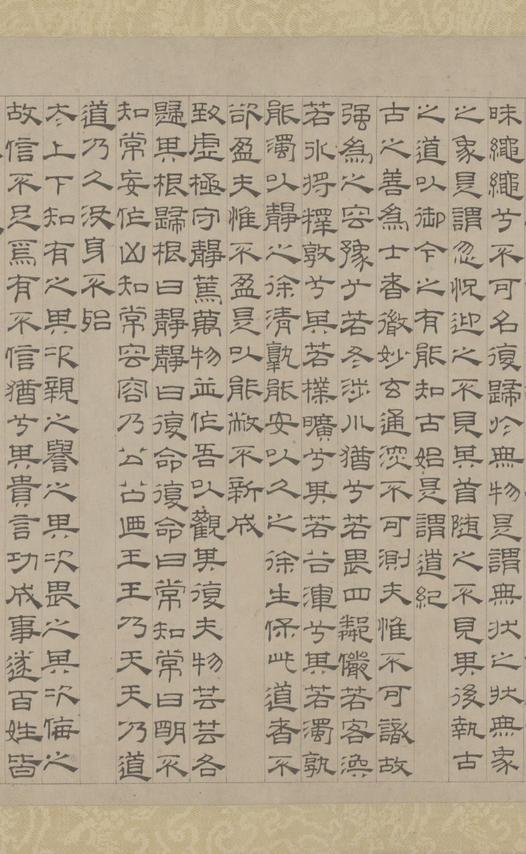 昧繩繩兮不可名復歸於無物是謂無狀之狀無象
之象是謂忽怳迎之不見其首隨之不見其後執古
之道以御今之有能知古始是謂道紀
古之善為士者微妙玄通深不可測夫惟不可識故
强為之容豫兮若冬涉川猶兮若畏四鄰儼若客渙
若冰将釋敦兮其若樸曠兮其若谷渾兮其若濁孰
能濁以靜之徐清孰能安以久之徐生保此道者不
欲盈夫惟不盈是以能敝不新成
致虛極守靜篤萬物並作吾以觀其復夫物芸芸各
歸其根歸根曰靜靜曰復命復命曰常知常曰明不
知常妄作凶知常容容乃公公迺王王乃天天乃道
道乃久沒身不殆
太上下知有之其次親之譽之其次畏之其次侮之
故信不足焉有不信猶兮其貴言功成事遂百姓皆